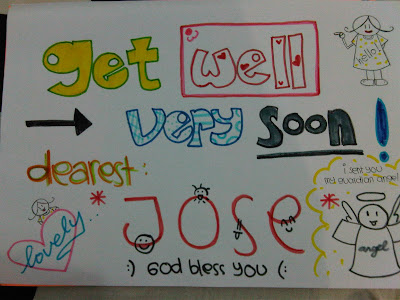 get well
hello
very soon!
dearest:
i sent you
my guardian angel
JOSE
lovely
angel
:) God bless you (: